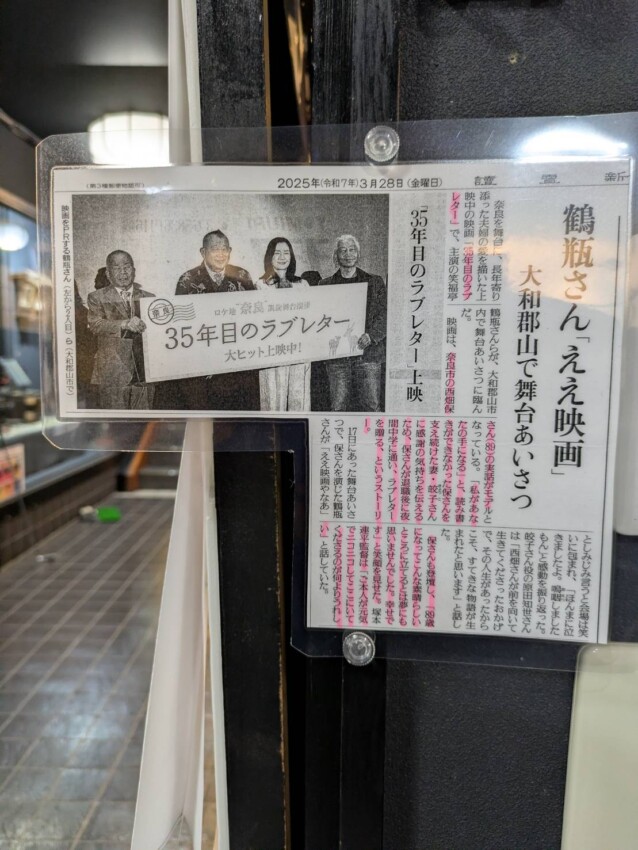 (第3種郵便物認可)
2025年(令和7年)3月28日(金曜日)
讀賣新
鶴瓶さん「ええ映画」
大和郡山で舞台あいさつ
「35年目のラブレター」上映
奈良を舞台に、長年寄り
添った夫婦の愛を描いた上
映中の映画「35年目のラブ
レター」で、主演の笑福亭
鶴瓶さんらが、大和郡山市
内で舞台あいさつに臨ん
だ。
映画は、奈良市の西畑保
さん(89)の実話がモデルと
なっている。「私があな
たの手になる」と、読み書
きができなかった保さんを
支え続けた妻・皎子さん
に感謝の気持ちを伝える
ため、保さんが退職後に夜
間中学に通い、ラブレター
を贈る、というストーリ
ー。
17日にあった舞台あいさ
つで、保さんを演じた鶴瓶
さんが「ええ映画やなあ」
としみじみ言うと会場は笑
いに包まれ、「ほんまに泣
きましたよ。嗚咽しました
もん」と感動を振り返った。
皎子さん役の原田知世さん
は「西畑さんが前を向いて
生きてくださったおかげ
で、その人生があったから
こそ、すてきな物語が生
まれたと思います」と話し
た。
保さんも登壇し、「89歳
になってこんな素晴らしい
ところに立てるとは夢にも
思いませんでした。幸せで
す」と笑顔を見せた。塚本
連平監督は「ご本人が元気
でニコニコしてここにいて
くださるのが何よりうれし
い」と話していた。
映画をPRする鶴瓶さん(左から2人目)ら(大和郡山市で)
奈良
ロケ地"奈良"凱旋舞台挨拶
35年目のラブレター
大ヒット上映中!